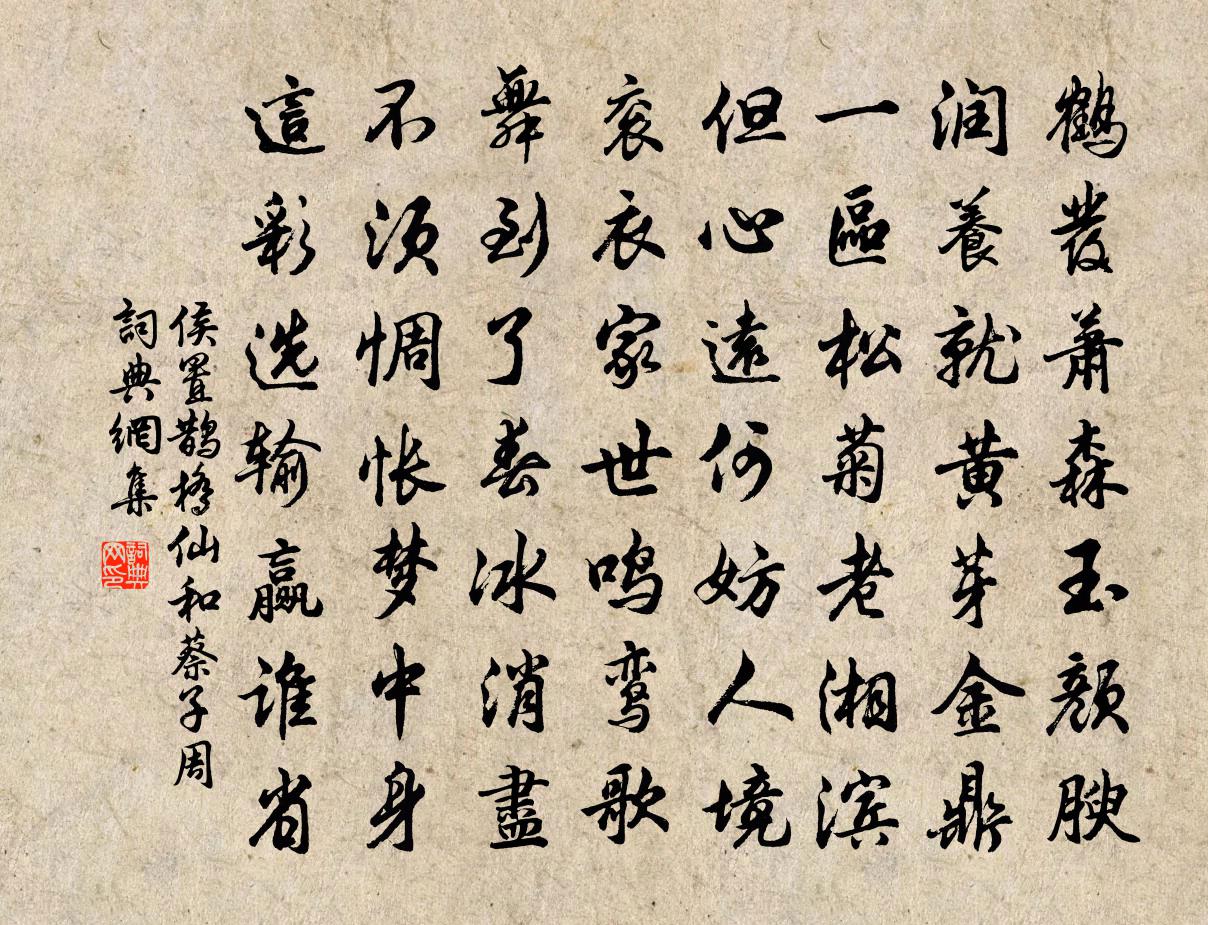 鶴發萧森玉颜腴
润養就黄芽金鼎
一區松菊老湘滨
但心遠何妨人境
衮衣家世鸣鸾歌
舞到了春冰消盡
不须惆怅梦中身
這彩选输赢谁省
侯置鹊橋仙和蔡子周
詞典網集
詞典